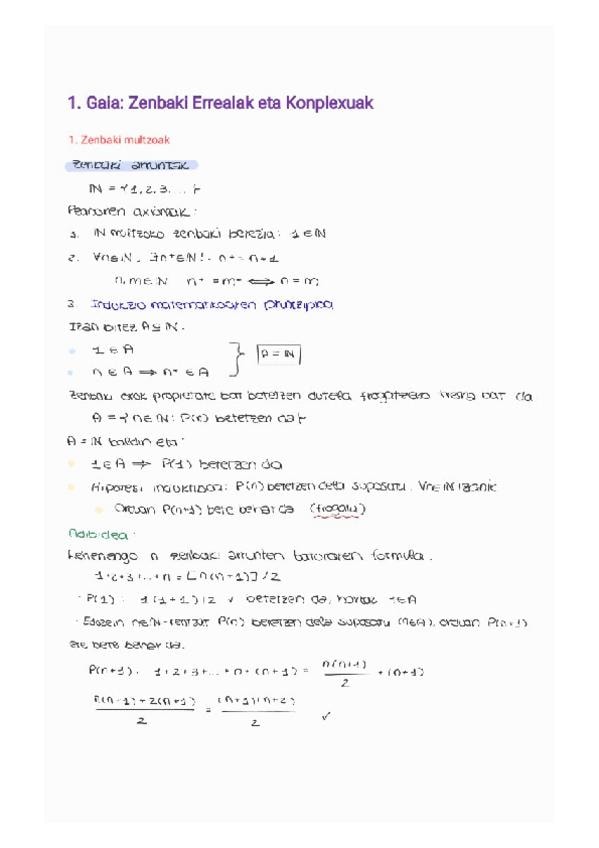 1. Gaia: Zenbaki Errealak eta Konplexuak
1. Zenbaki multzoak
Zenbaki arruntak
ℕ = {1, 2, 3, ... }
Peanoren axiomak:
1. ℕ multzoko zenbaki berezia: 1 ∈ ℕ
2. ∀n∈ℕ, ∃n⁺∈ℕ! . n⁺ = n+1
n, m ∈ ℕ n⁺ = m⁺ ⟺ n = m
3. Indukzio matematikoaren printzipioa
Izan bitez A ⊆ ℕ.
• 1 ∈ A
• n ∈ A ⟹ n⁺ ∈ A } A = ℕ
Zenbaki orok propietate bat betetzen dutela frogatzeko bat da
A = {n ∈ ℕ : P(n) betetzen da}
A = ℕ baldin eta:
• 1 ∈ A ⟹ P(1) betetzen da
• Hipotesi induktiboa: P(n) betetzen dela suposatu, ∀n ∈ ℕ izanik
• Orduan P(n+1) bete behar da (frogatu)
Adibidea:
Lehenengo n zenbaki arrunten baturaren formula.
1+2+3+...+n = [n(n+1)]/2
· P(1): 1(1+1)/2 ✓ betetzen da, hortaz 1∈A
· Edozein n∈ℕ-rentzat P(n) betetzen dela suposatu (n∈A), orduan P(n+1)
ere bete behar da.
P(n+1): 1+2+3+...+n+(n+1) = n(n+1)/2 + (n+1)
n(n+1)+2(n+1)/2 = (n+1)(n+2)/2 ✓